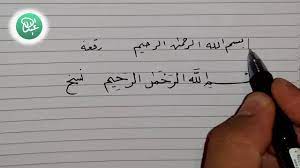 بسم الله الرحمن الرحيم رقعة
بسم الله الرحمن الرحيم نسخ